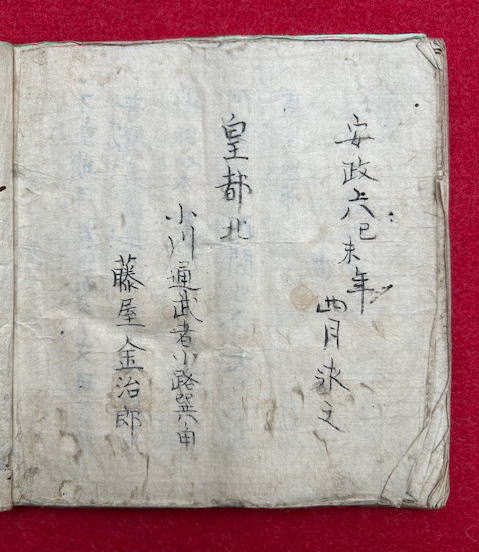 安政六己未年
四月求之
皇都北
小川通武者小路巽角
藤屋金治郎